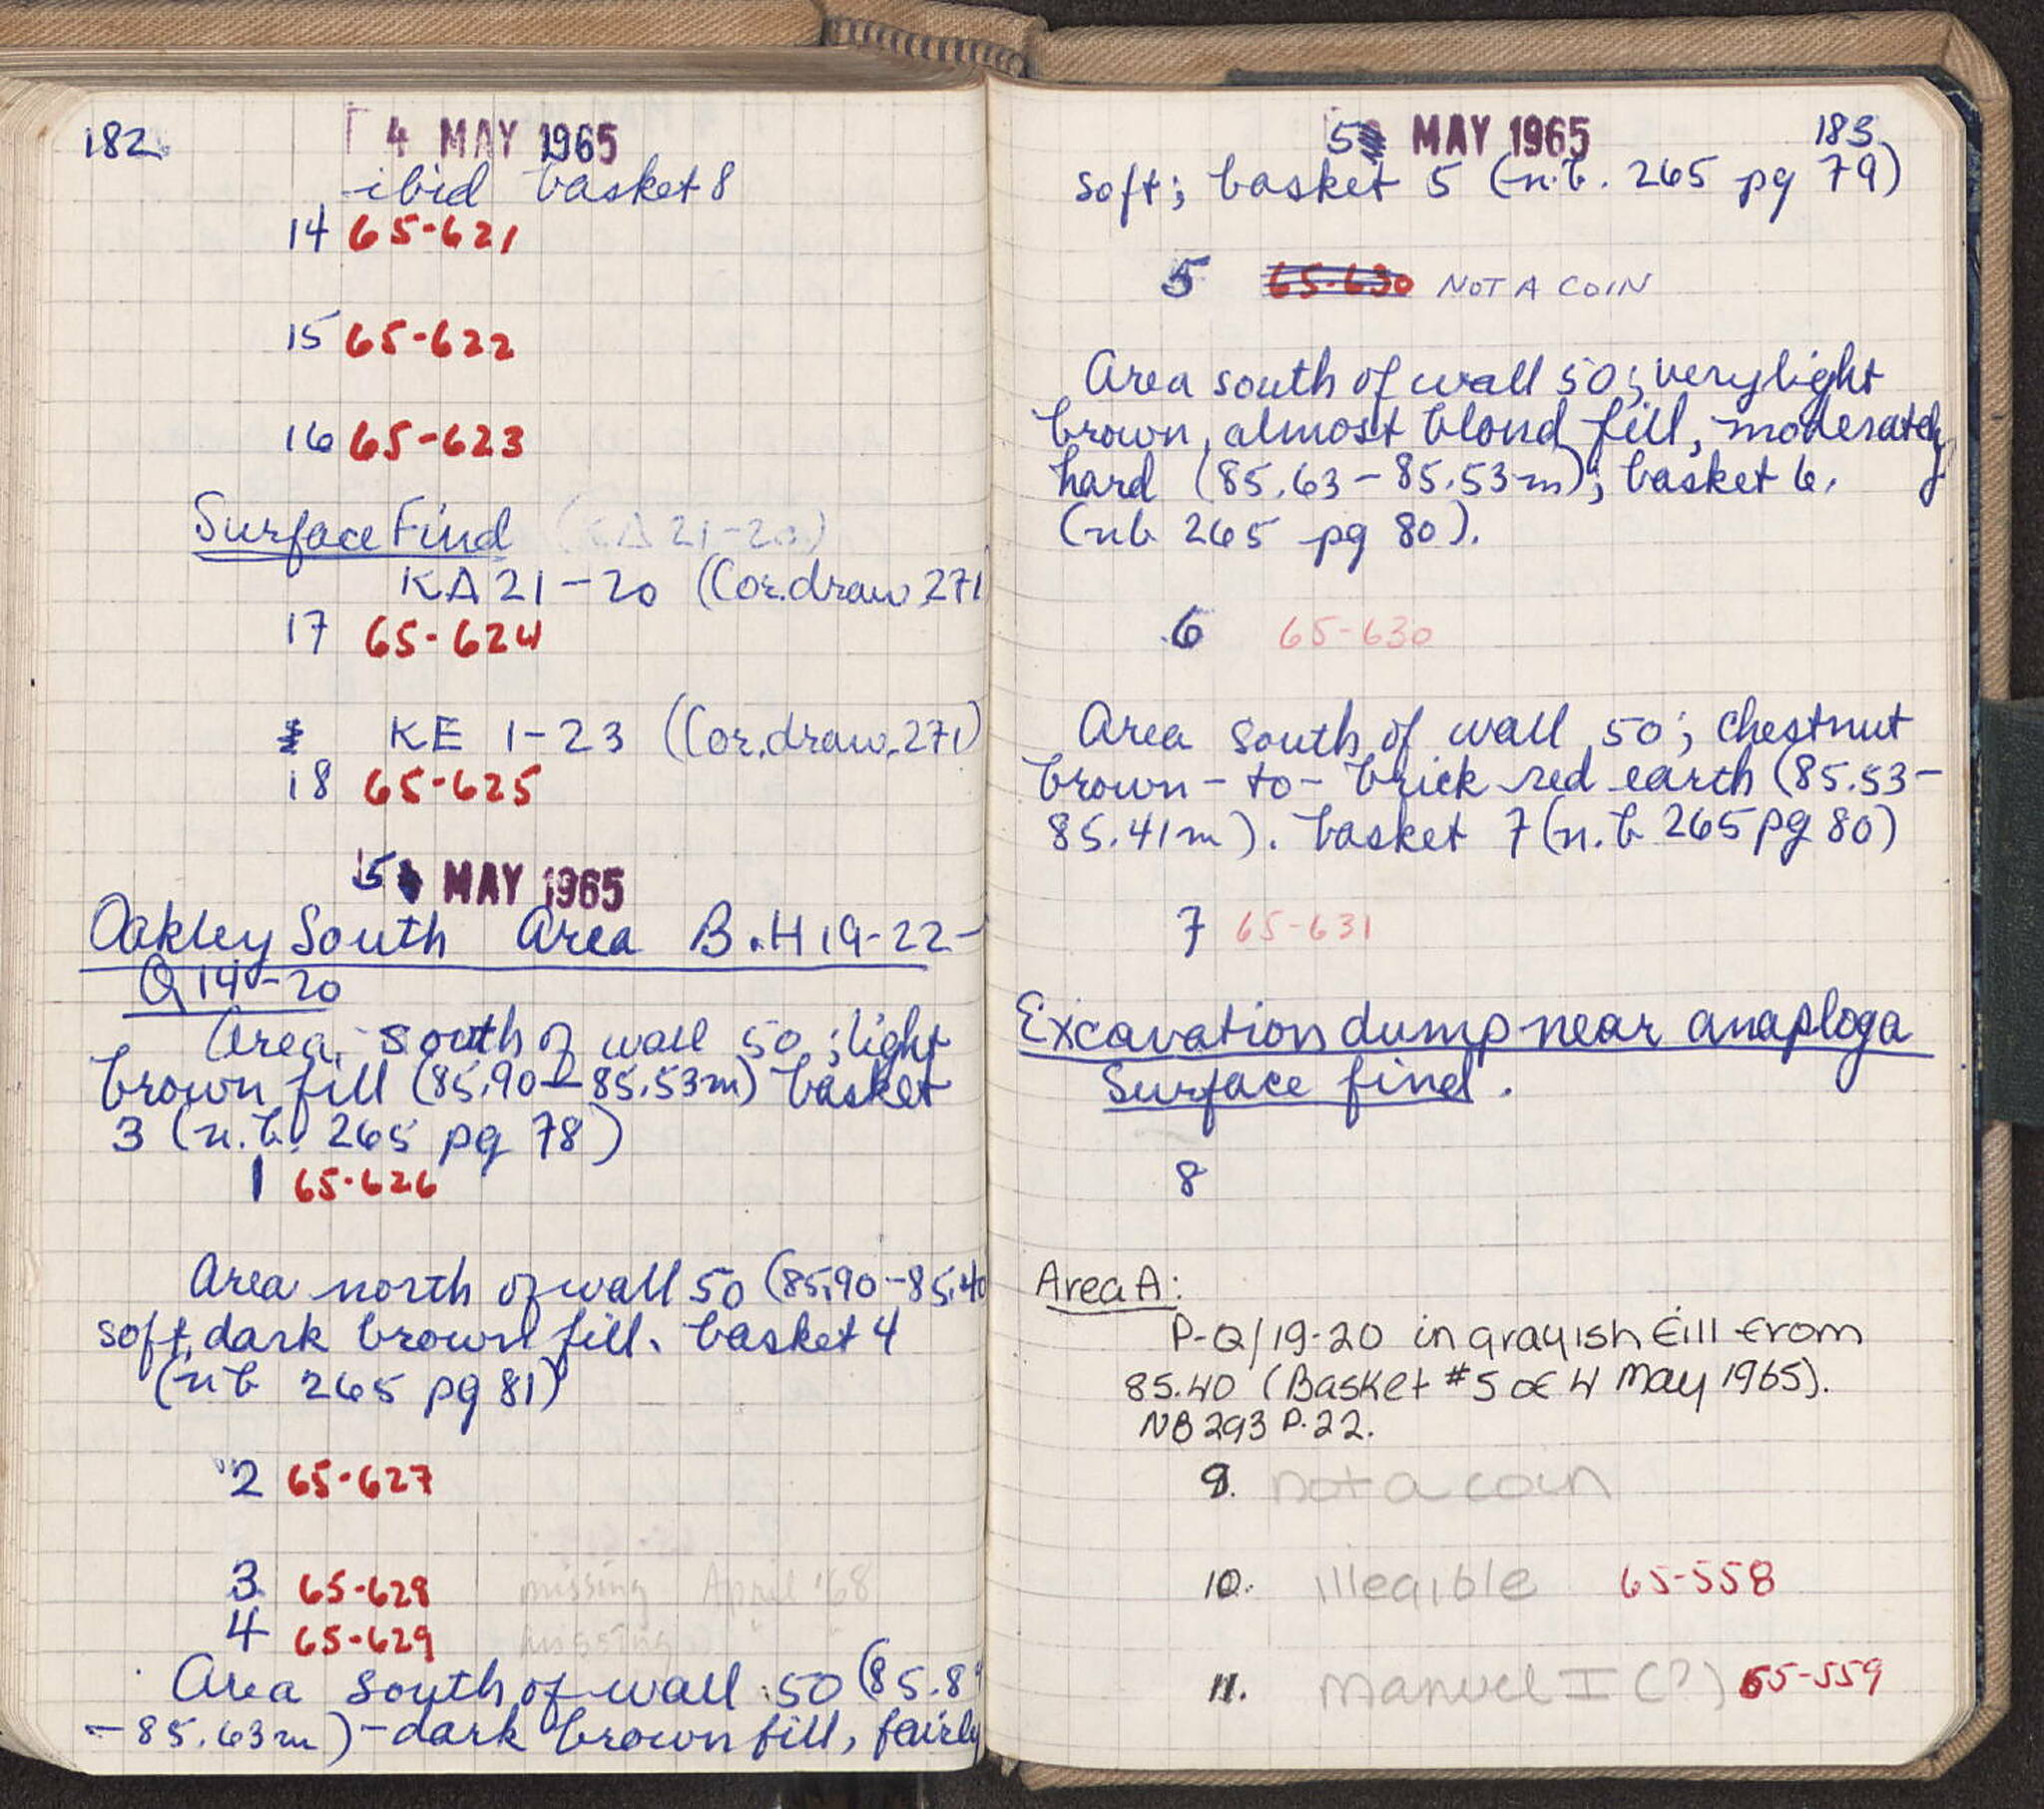 182
4 MAY 1965
ibid basket 8
14 65-621
15 65-622
16 65-623
Surface Find (KA 21-20)
KA 21-20 (Cor.draw.271
17 65-624
KE 1-23 (Cor.draw.271)
18 65-625
5 MAY 1965
Oakley South Area B.H19-22-
Q 14-20
Area south of wall 50; light
brown fill (85.90-85.53m) basket
3 (n.b. 265 pg 78)
1 65-626
Area north of wall 50 (85.90-85.40
soft, dark brown fill. basket 4
(nb 265 pg 81)
2 65-627
3 65-628 missing April '68
4 65-629 missing " "
Area south of wall 50 (85.89
-85.63m)-dark brown fill, fairly
5 MAY 1965
183
soft; basket 5 (n.b. 265 pg 79)
5 65-630 NOT A COIN
Area south of wall 50; very light
brown, almost blond fill, moderately
hard (85.63-85.53m); basket 6.
(nb 265 pg 80).
6 65-630
Area south of wall 50; chestnut
brown-to-brick red earth (85.53-
85.41m). basket 7 (n.b 265 pg 80)
7 65-631
Excavation dump near anaploga
Surface find.
8
Area A:
P-Q/19-20 in grayish fill from
85.40 (Basket #5 of 4 May 1965).
NB 293 P.22.
9. not a coin
10. illegible 65-558
11. Manuel I (?) 65-559